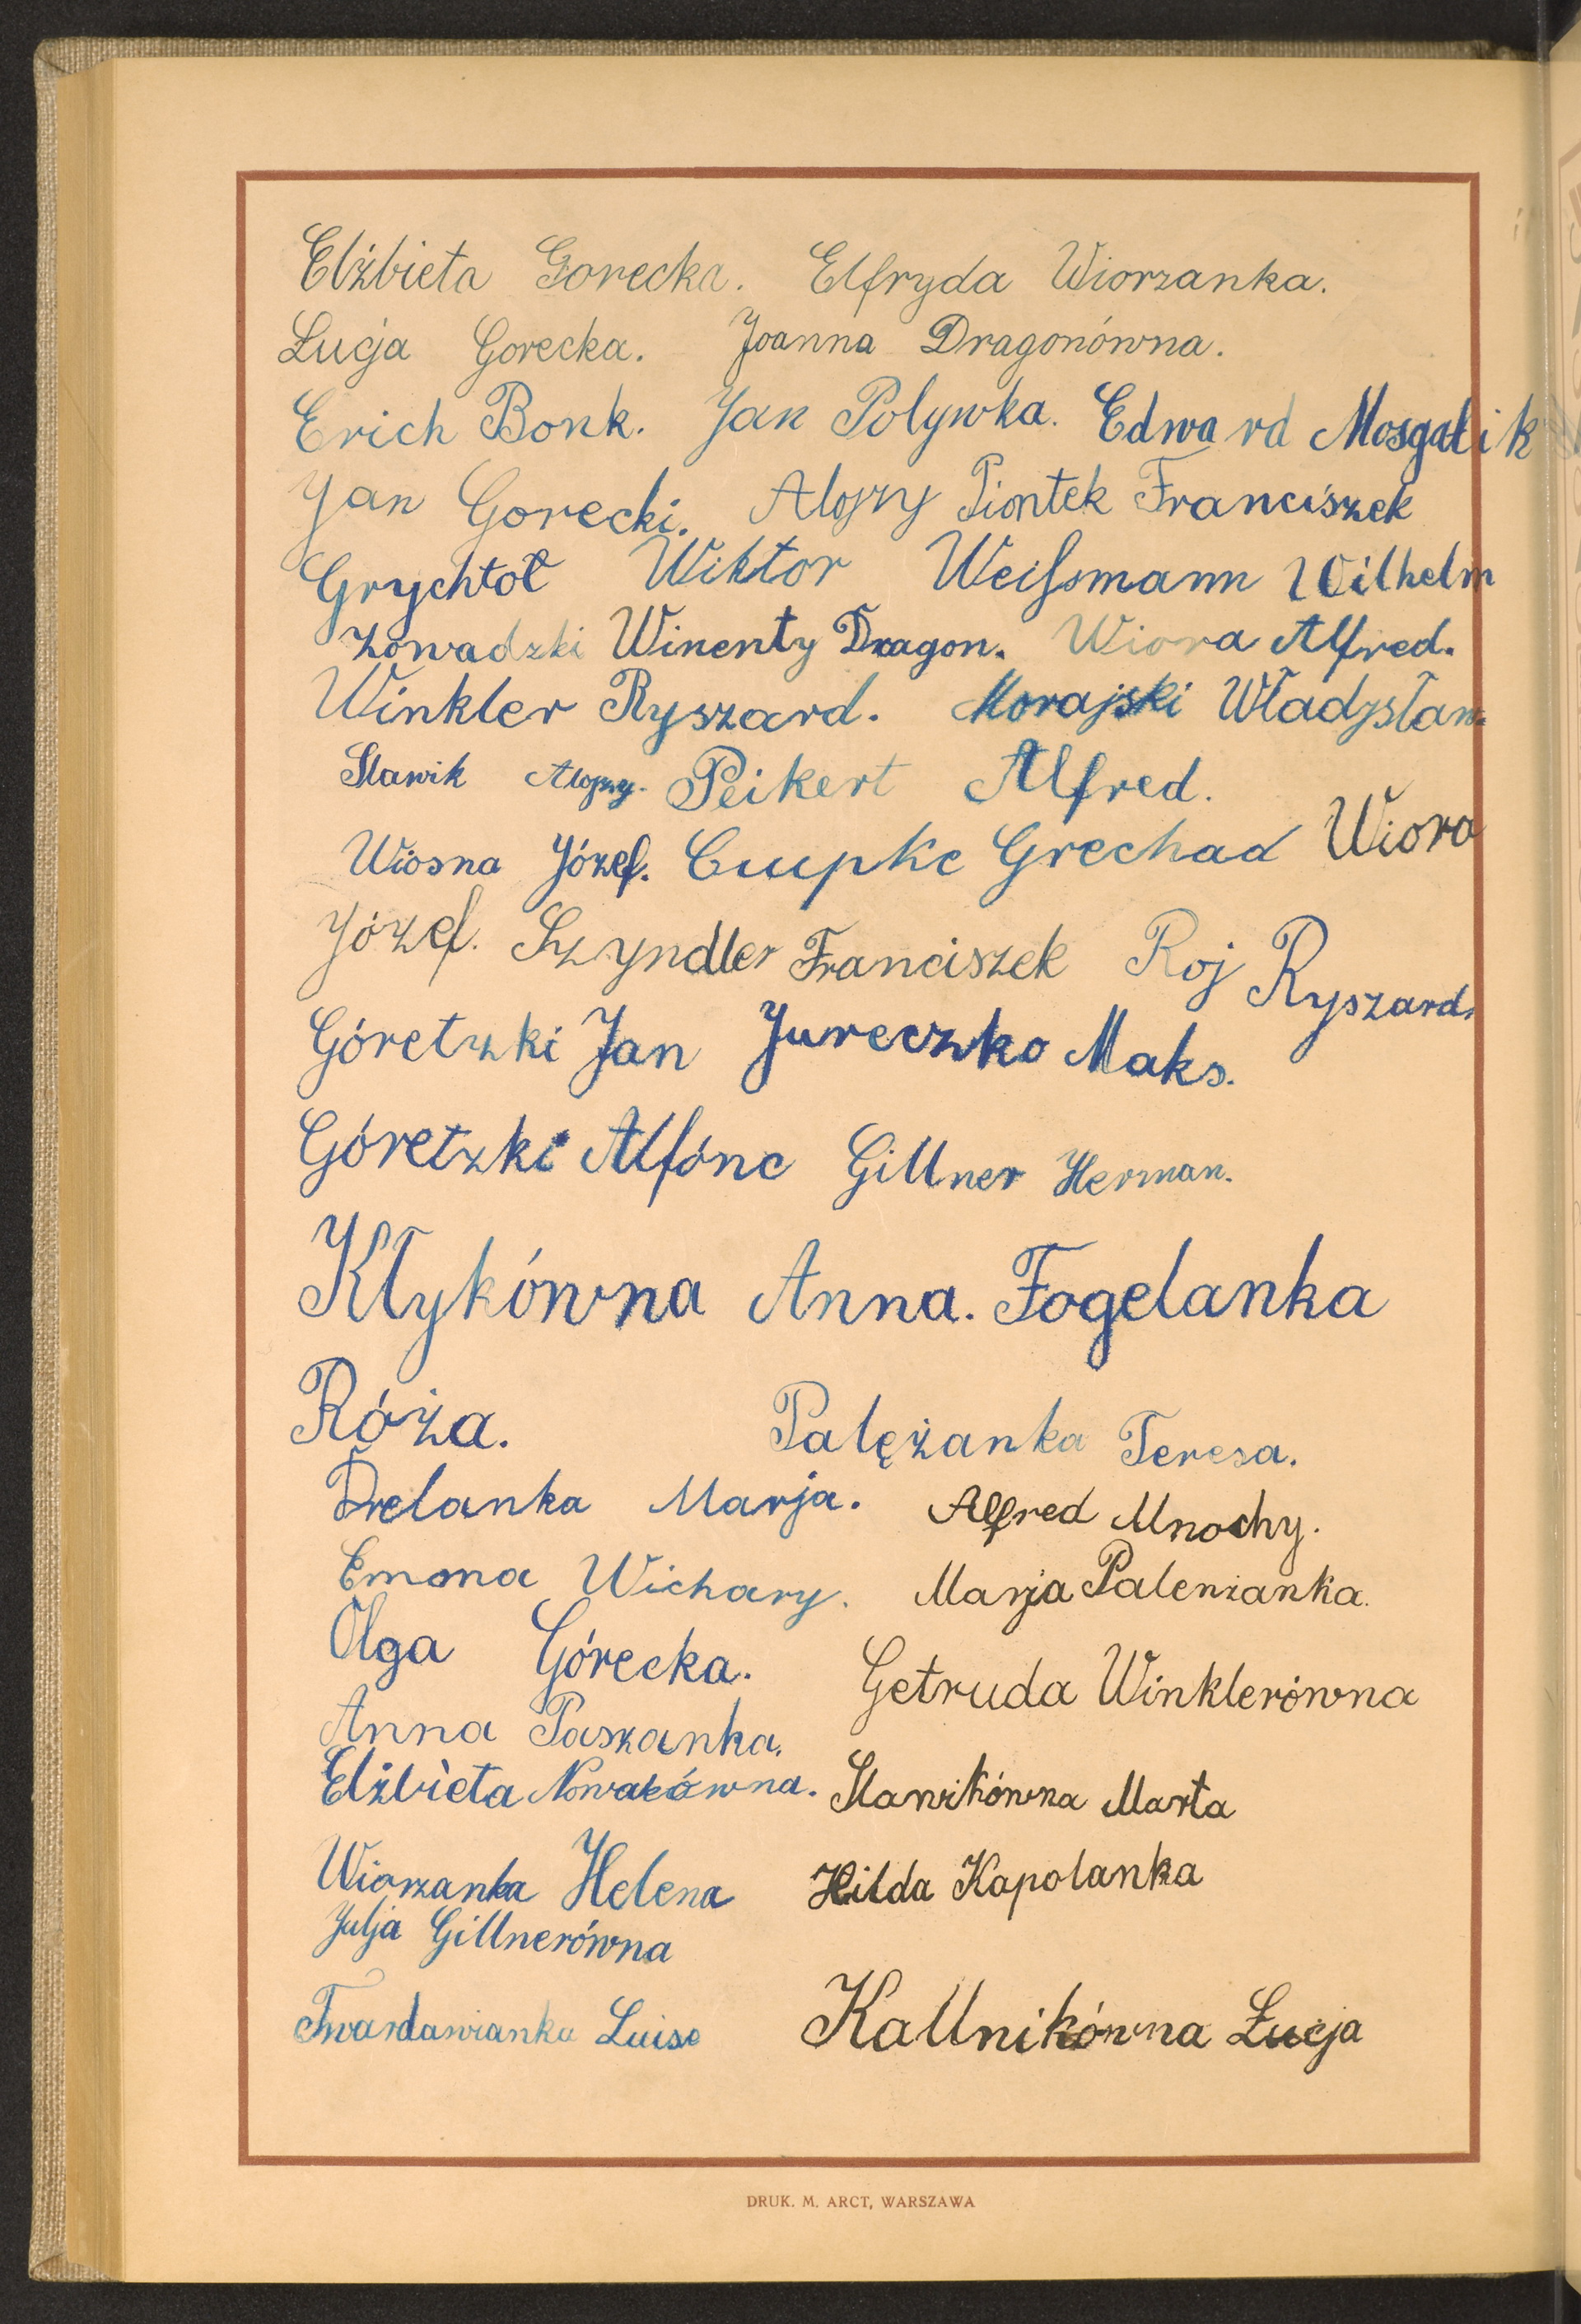 Elżbieta Gorecka. Elfryda Wiorzanka.
Łucja Gorecka. Joanna Dragonówna.
Erich Bonk. Jan Polywka. Edward Mosgalik
Jan Gorecki. Alojzy Piontek Franciszek
Grychtoł Wiktor Weißmann Wilhelm
Zowadzki Winenty Dragon. Wiora Alfred.
Winkler Ryszard. Morajski Władysław.
Slawik Alojzy. Peikert Alfred.
Wiosna Józef. Grechad Wiora
Józef. Szyndler Franciszek Roj Ryszard.
Góretzki Jan Jureczko Maks.
Góretzki Alfónc Gillner Herman.
Kłykówna Anna. Fogelanka
Róża. Palężanka Teresa.
Drelanka Marja. Alfred Mnochy.
Emma Wichary. Marja Palenzanka.
Olga Górecka. Getruda Winklerówna
Anna Paszanka.
Elżbieta Nowakówna. Slawikówna Marta
Wiorzanka Helena Hilda Kapolanka
Julja Gillnerówna
Twardawianka Luise Kallnikówna Łucja
DRUK. M. ARCT, WARSZAWA